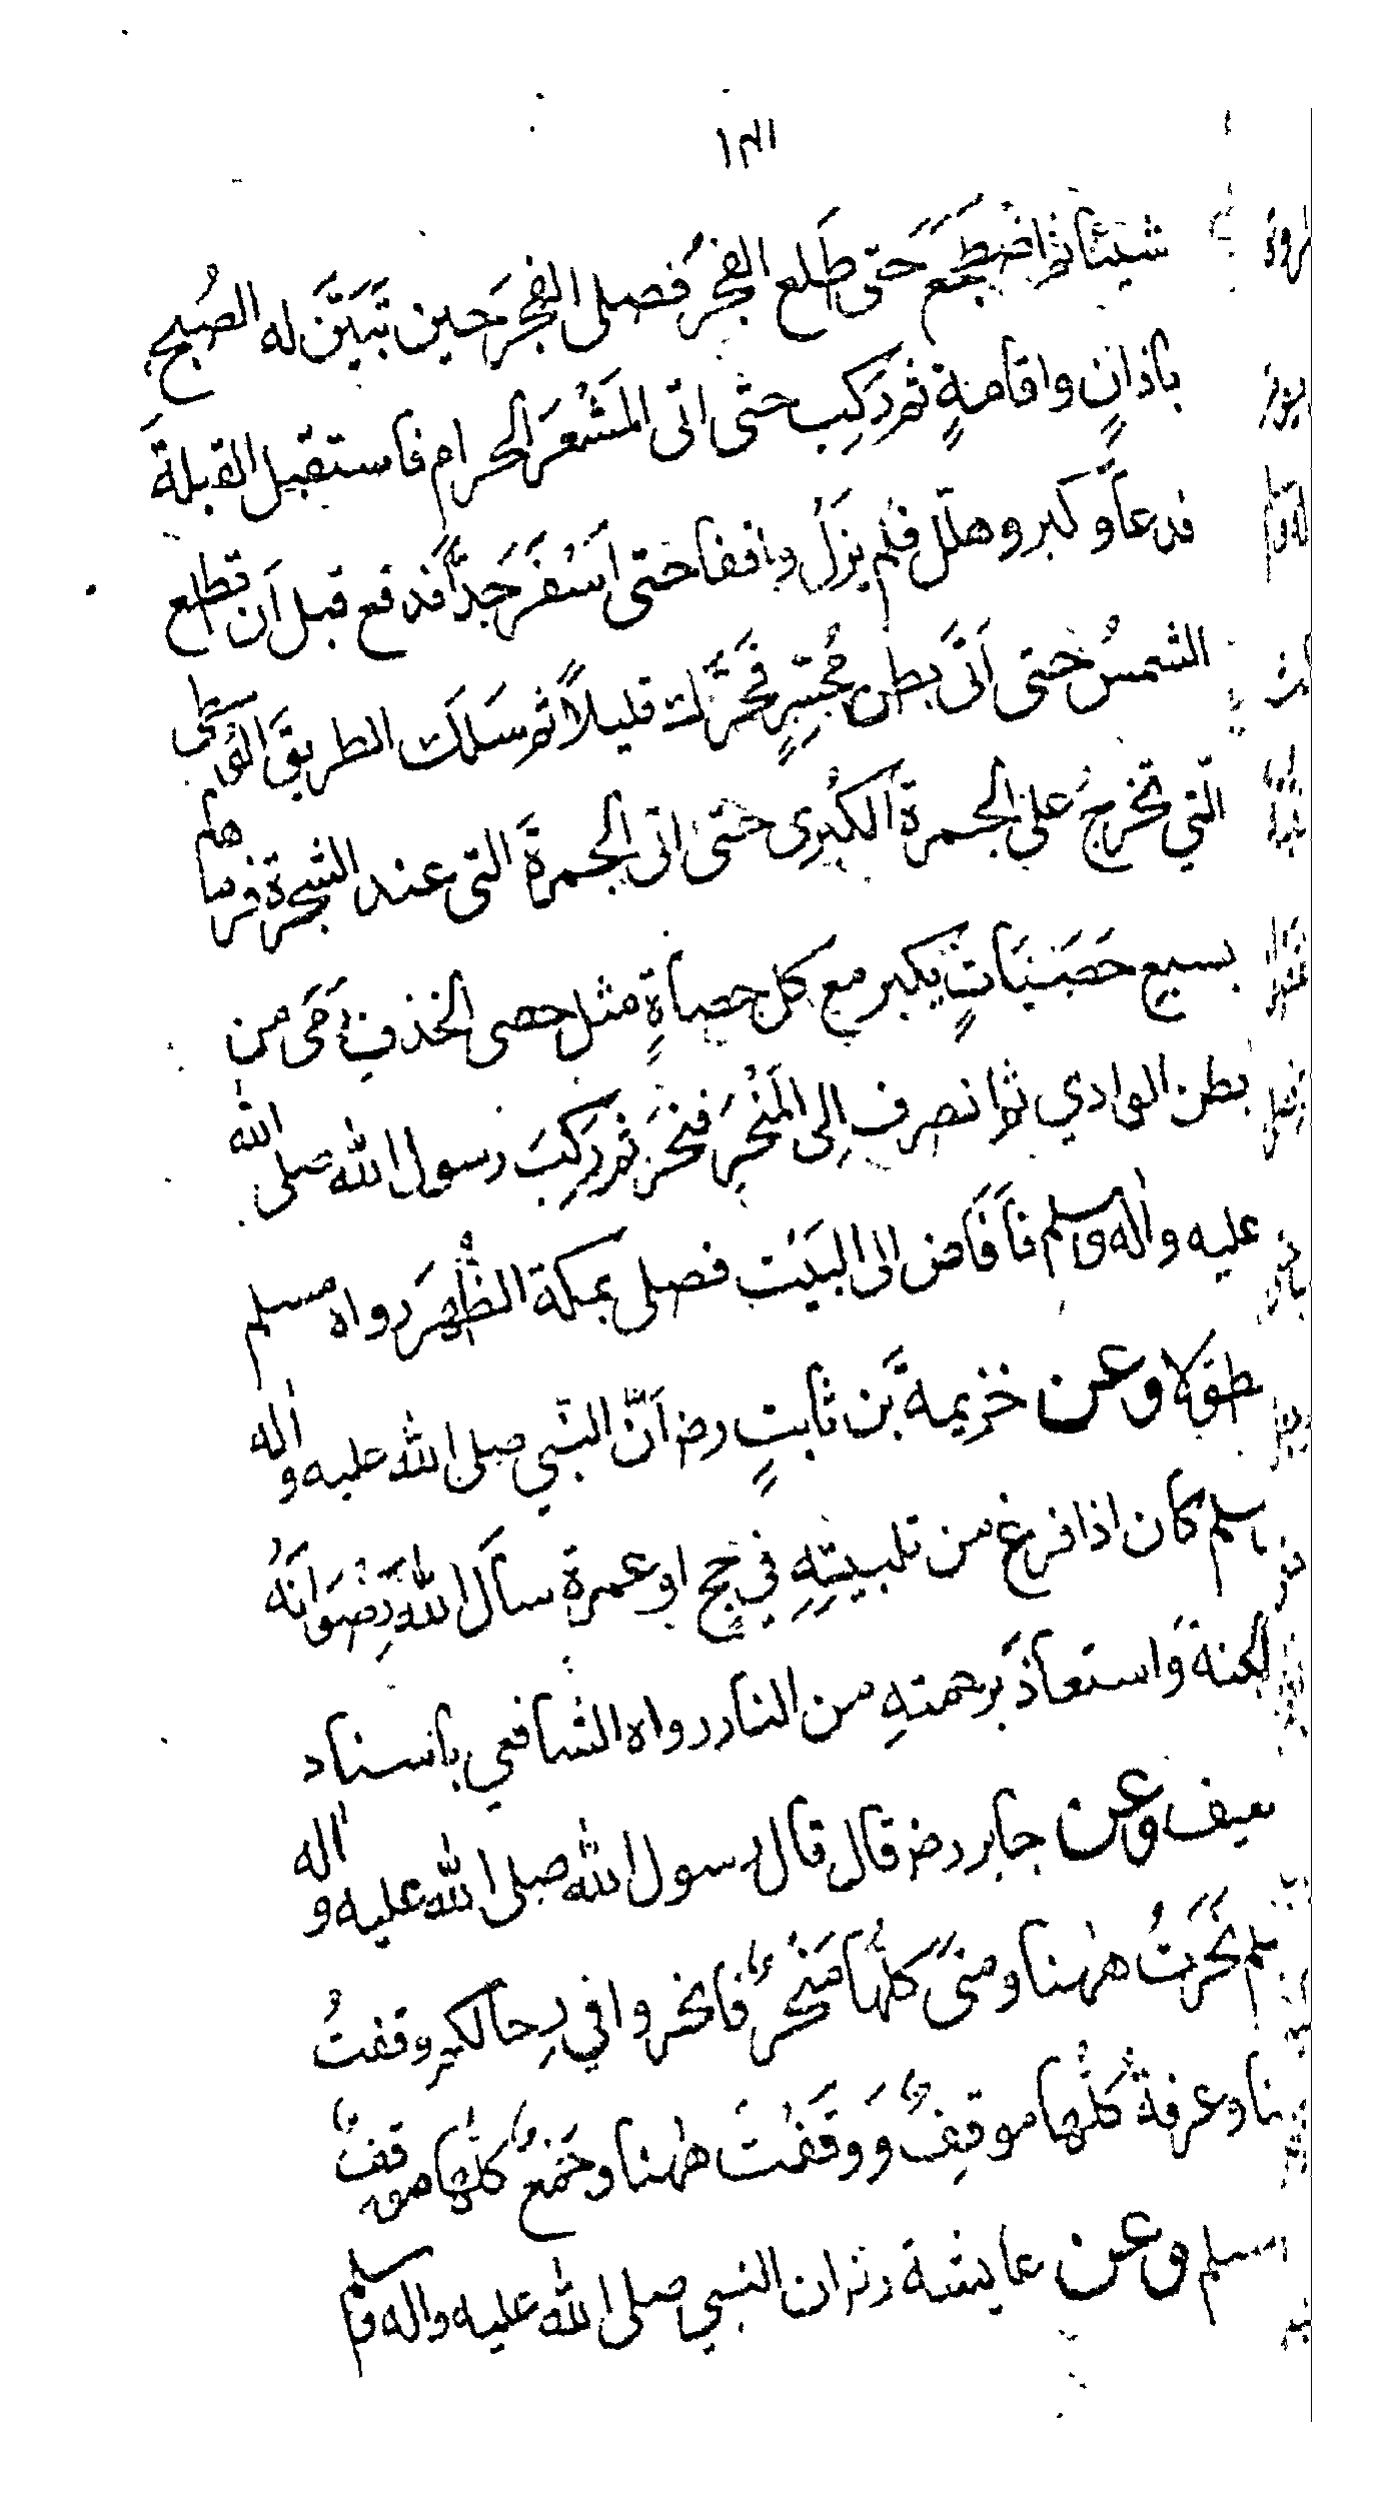 شيئا ثم اضطجع حتى طلع الفجر فصلى الفجر حين تبين له الصبح
باذان واقامة ثم ركب حتى اتى المشعر الحرام فاستقبل القبلة
فدعا وكبر وهلل فلم يزل واقفا حتى اسفر جدا فدفع قبل ان تطلع
الشمس حتى اتى بطن محسر فحرك قليلا ثم سلك الطريق الوسطى
التي تخرج على الجمرة الكبرى حتى اتى الجمرة التي عند الشجرة فرماها
بسبع حصيات يكبر مع كل حصاة مثل حصى الخذف رمى من
بطن الوادي ثم انصرف الى المنحر فنحر ثم ركب رسول الله صلى الله
عليه واله وسلم فافاض الى البيت فصلى بمكة الظهر رواه مسلم
مطولا وعن خزيمة بن ثابت رضـ ان النبي صلى الله عليه واله
وسلم كان اذا فرغ من تلبيته في حج او عمرة سأل الله رضوانه
الجنة واستعاذ برحمته من النار رواه الشافعي باسناد
عيف وعن جابر رضـ قال قال رسول الله صلى الله عليه واله
سلم نحرت ههنا ومنى كلها منحر فانحروا في رحالكم وقفت
هنا وعرفة كلها موقف ووقفت ههنا وجمع كلها موقف
مسلم وعن عايشة رضـ ان النبي صلى الله عليه واله وسلم